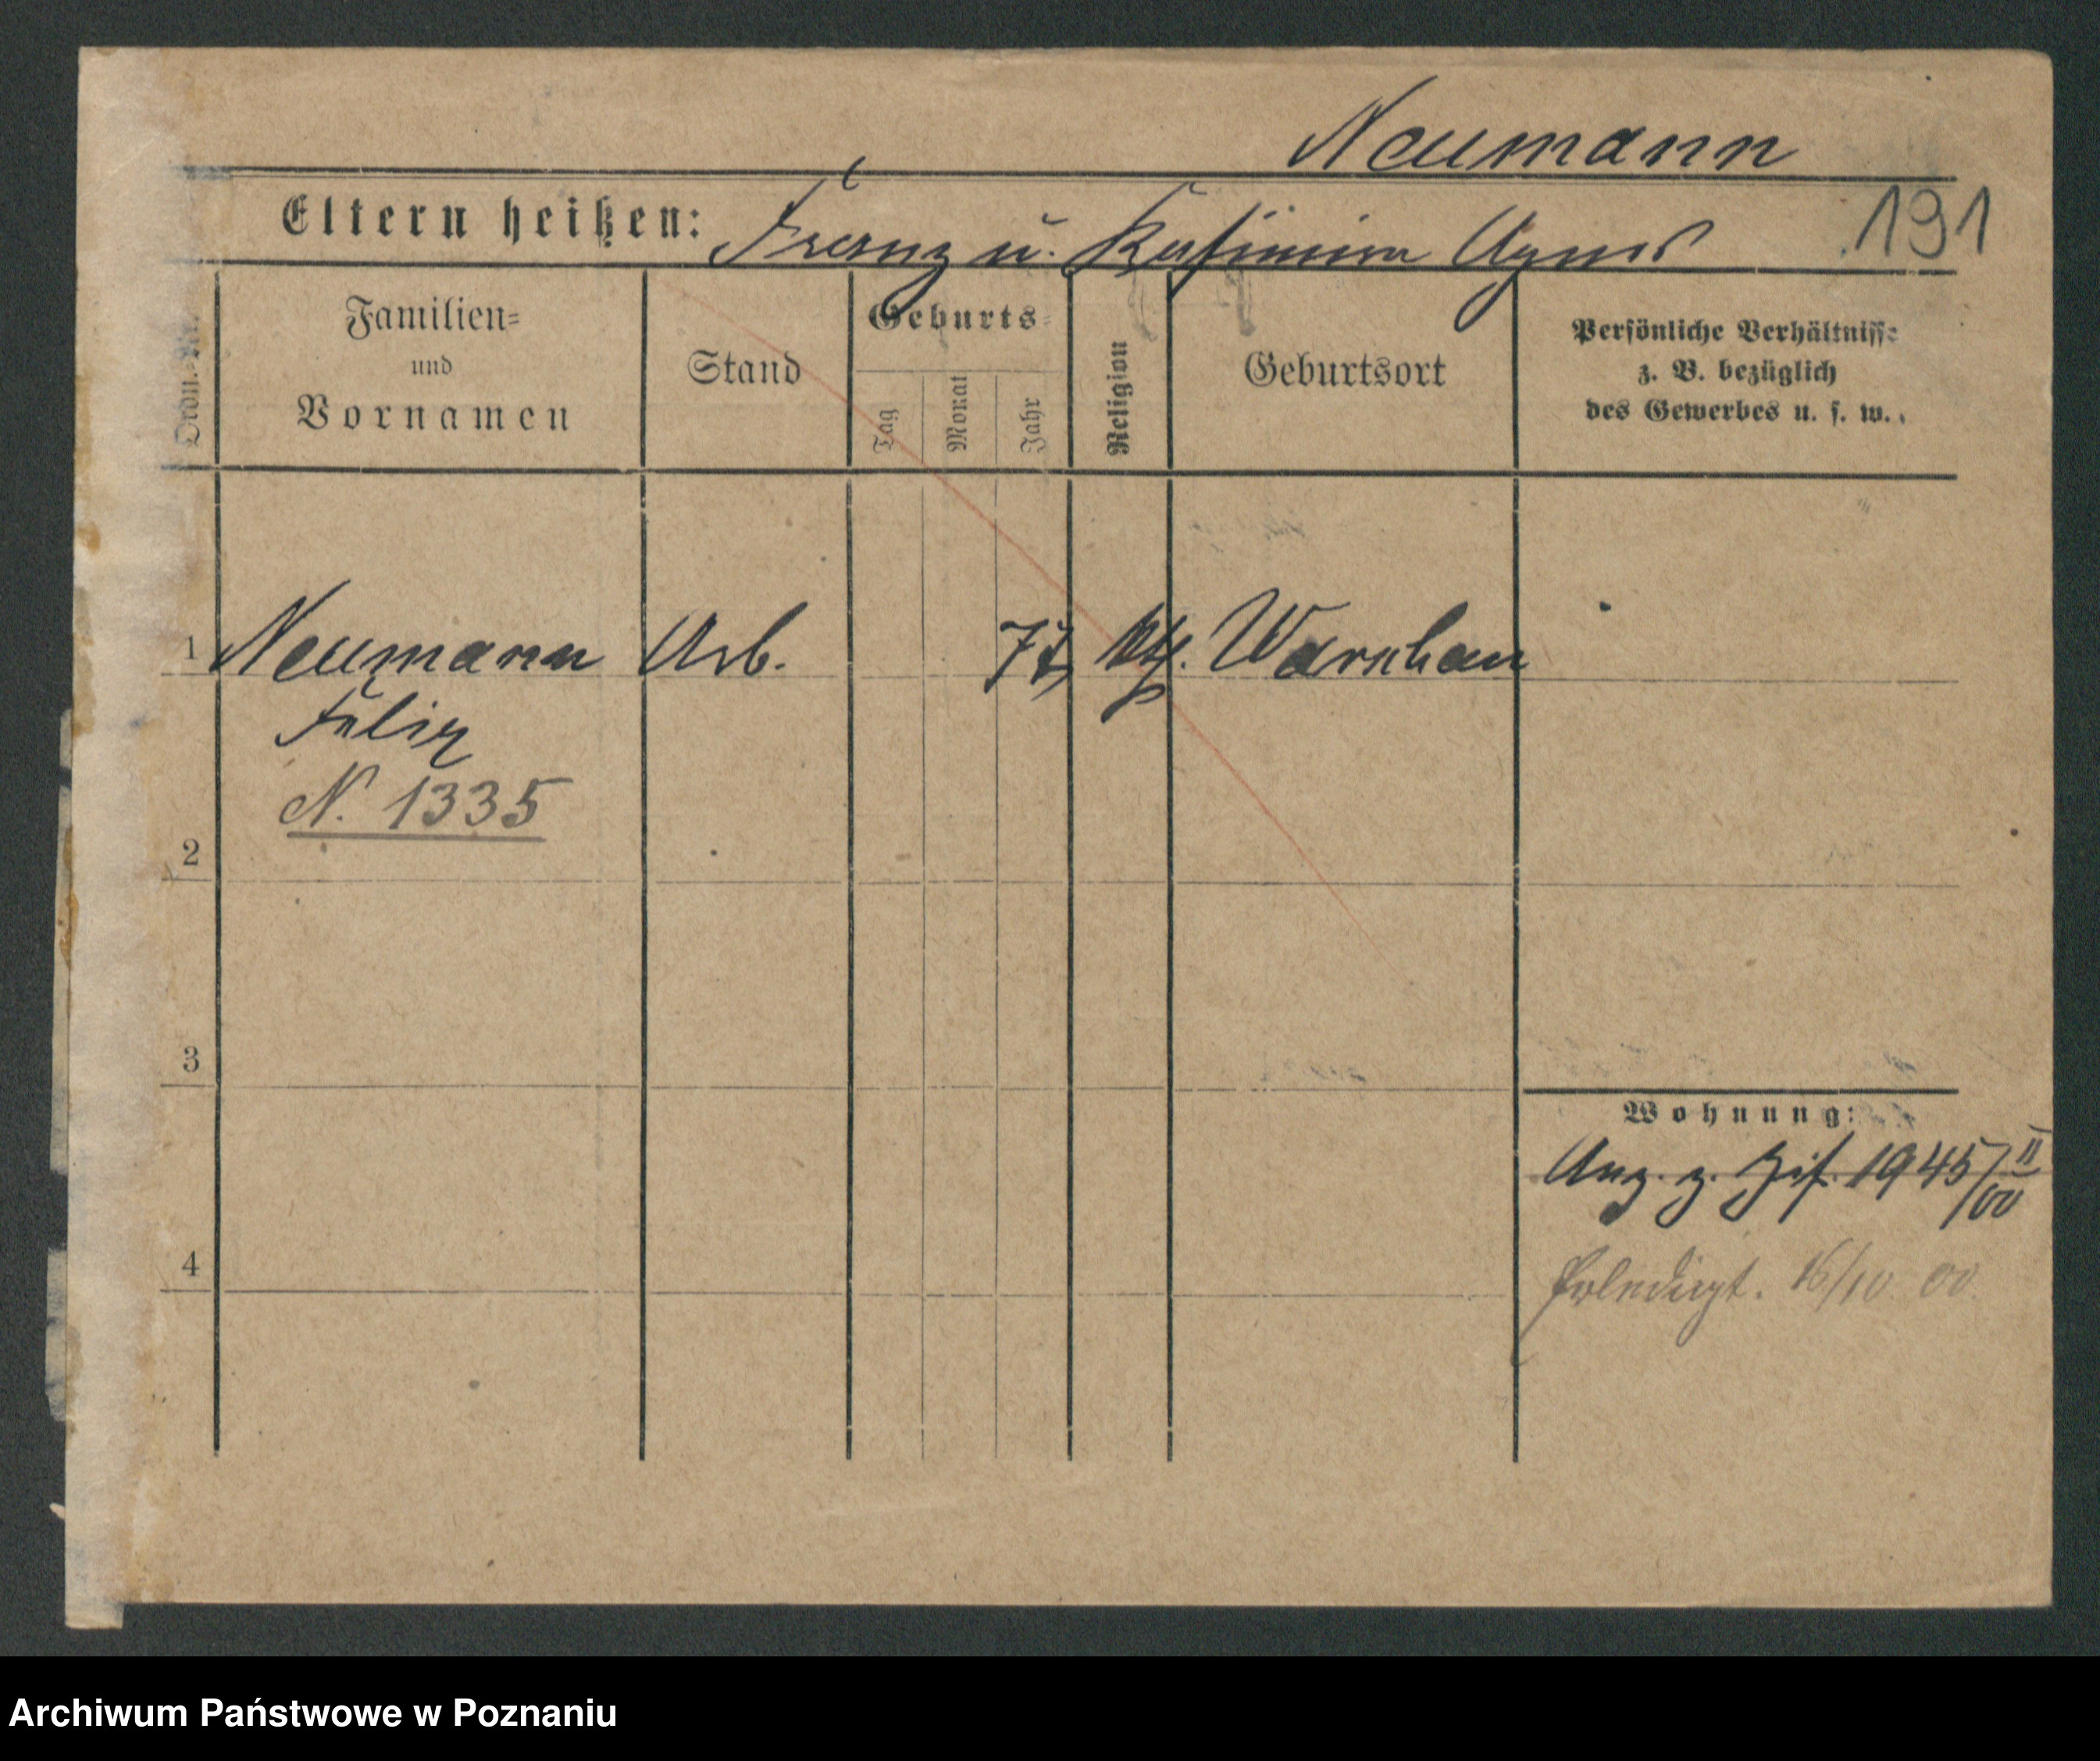 Neumann
Eltern heißen: Franz u. Kasimira Agnes 191
Ordn.-Nr.
Familien-
und
Vornamen
Stand
Geburts-
Tag
Monat
Jahr
Religion
Geburtsort
Persönliche Verhältnisse
z. B. bezüglich
des Gewerbes u. s. w.
1 Neumann Arb. kth.
Felix
N. 1335
2
3
Wohnung:
Anz. z. 1945/II
00
4
Erledigt. 16/10 00.
Archiwum Państwowe w Poznaniu